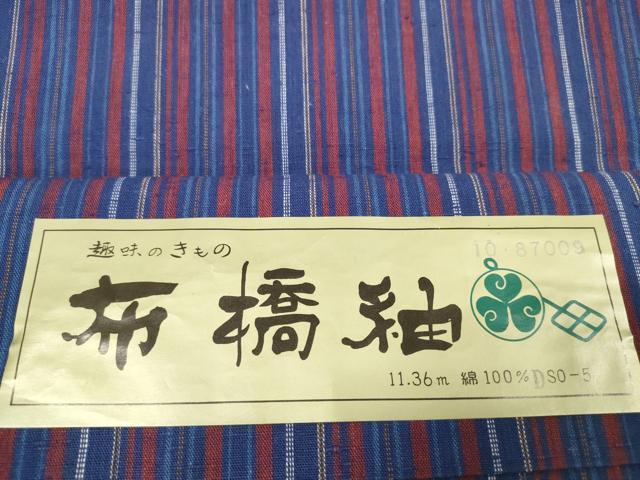 趣味のきもの
10-87009
布橋紬
11.36m 綿100% DSO-5